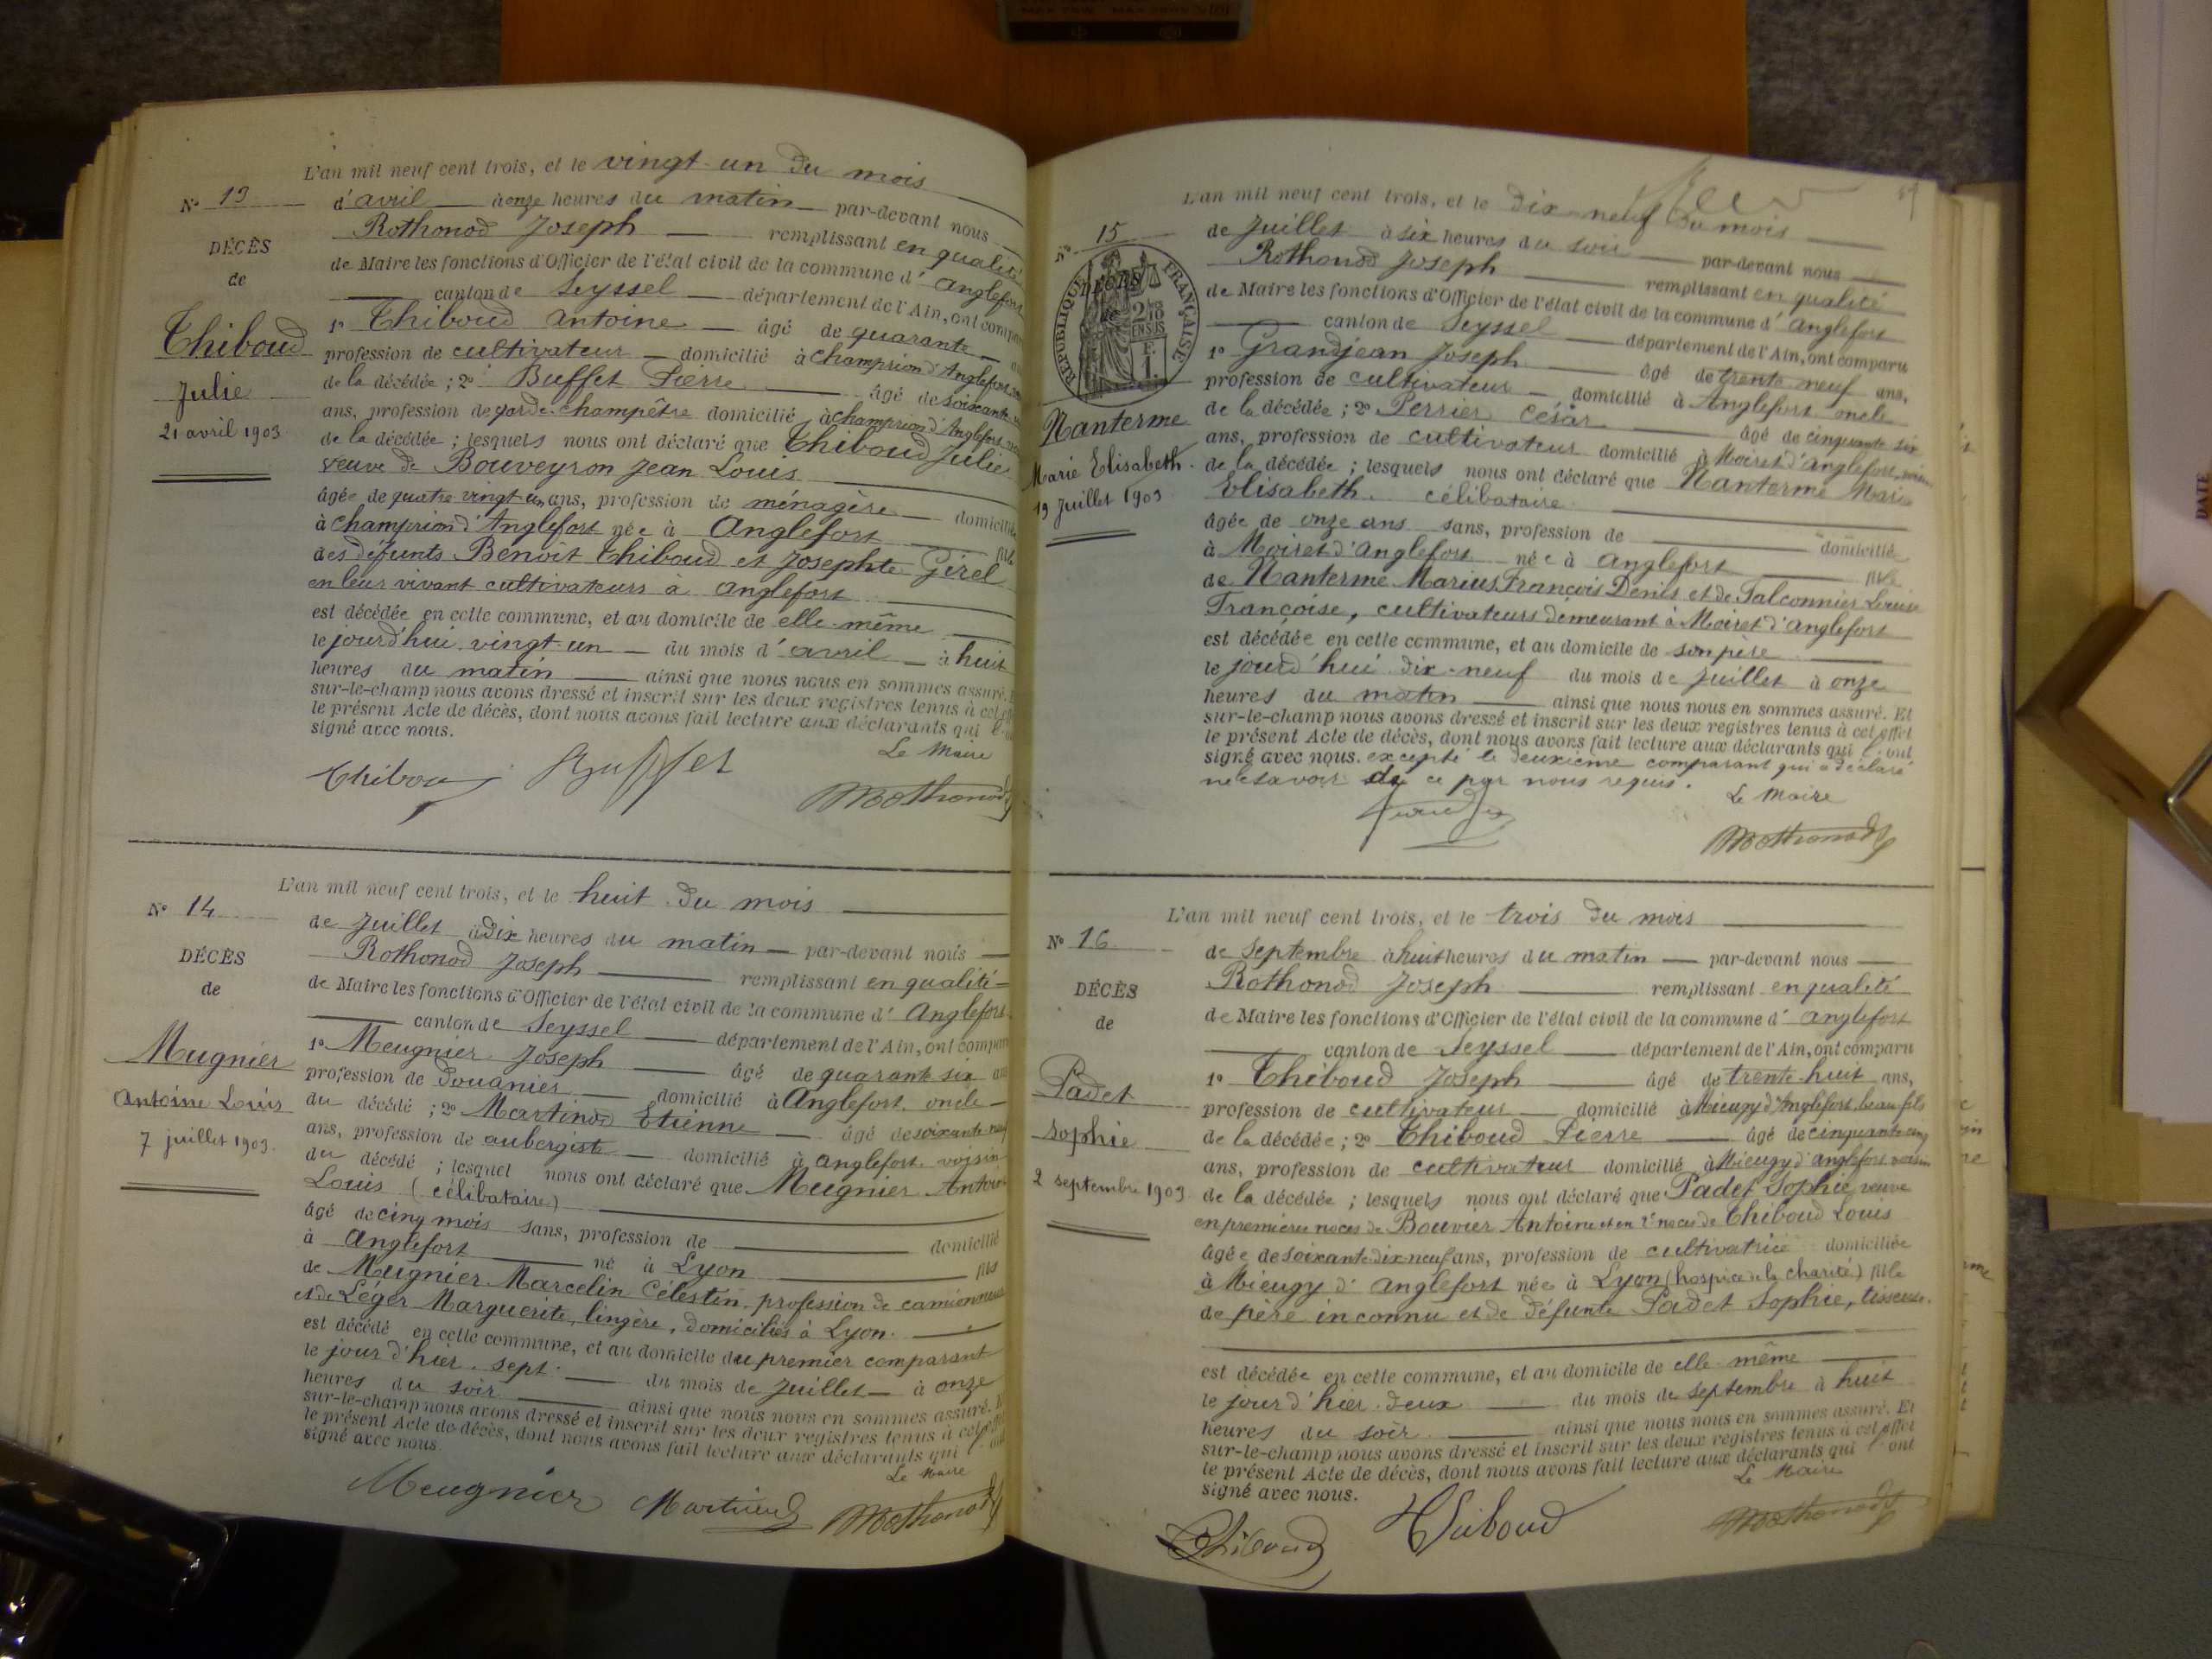 L'an mil neuf cent trois, et le vingt-un du mois
N° 13
d'avril à onze heures du matin par-devant nous
Rothonod Joseph remplissant en qualité
DÉCÈS
de Maire les fonctions d'Officier de l'état civil de la commune d' Anglefort
de
canton de Seyssel département de l'Ain, ont comparu
Thiboud
1° Thiboud Antoine âgé de quarante
profession de cultivateur domicilié à Champrion d'Anglefort
Julie
de la décédée ; 2° Buffet Pierre âgé de soixante
ans, profession de garde-champêtre domicilié à Champrion d'Anglefort
21 avril 1903
de la décédée ; lesquels nous ont déclaré que Thiboud Julie
veuve de Bouveyron Jean Louis
âgée de quatre-vingt-un ans, profession de ménagère domiciliée
à Champrion d'Anglefort née à Anglefort fille
des défunts Benoît Thiboud et Josephte Girel
en leur vivant cultivateurs à Anglefort
est décédée en cette commune, et au domicile de elle-même
le jourd'hui vingt-un du mois d'avril à huit
heures du matin ainsi que nous nous en sommes assuré. Et
sur-le-champ nous avons dressé et inscrit sur les deux registres tenus à cet effet
le présent Acte de décès, dont nous avons fait lecture aux déclarants qui l'ont
signé avec nous.
Le Maire
Thiboud Buffet Rothonod
L'an mil neuf cent trois, et le huit du mois
N° 14
de Juillet à dix heures du matin par-devant nous
Rothonod Joseph remplissant en qualité
DÉCÈS
de Maire les fonctions d'Officier de l'état civil de la commune d' Anglefort
de
canton de Seyssel département de l'Ain, ont comparu
Mugnier
1° Meugnier Joseph âgé de quarante six ans
profession de douanier domicilié à Anglefort oncle
Antoine Louis
du décédé ; 2° Martinod Etienne âgé de soixante-neuf
7 juillet 1903
ans, profession de aubergiste domicilié à Anglefort voisin
du décédé ; lesquel nous ont déclaré que Meugnier Antoine
Louis (célibataire)
âgé de cinq mois sans, profession de domicilié
à Anglefort né à Lyon fils
de Meugnier Marcelin Célestin, profession de camionneur
et de Léger Marguerite, lingère, domiciliés à Lyon.
est décédé en cette commune, et au domicile du premier comparant
le jour d'hier sept du mois de Juillet à onze
heures du soir ainsi que nous nous en sommes assuré. Et
sur-le-champ nous avons dressé et inscrit sur les deux registres tenus à cet effet
le présent Acte de décès, dont nous avons fait lecture aux déclarants qui l'ont
signé avec nous.
Le Maire
Meugnier Martinod Rothonod
L'an mil neuf cent trois, et le dix-neuf du mois
N° 15
de Juillet à six heures du soir par-devant nous
Rothonod Joseph remplissant en qualité
DÉCÈS
de
RÉPUBLIQUE FRANÇAISE
de Maire les fonctions d'Officier de l'état civil de la commune d' Anglefort
canton de Seyssel département de l'Ain, ont comparu
1° Grandjean Joseph âgé de trente-neuf ans,
profession de cultivateur domicilié à Anglefort oncle
Nanterme
de la décédée ; 2° Perrier César âgé de cinquante six
ans, profession de cultivateur domicilié à Moiret d'Anglefort, voisin
Marie Elisabeth
de la décédée ; lesquels nous ont déclaré que Nanterme Marie
19 Juillet 1903
Elisabeth. célibataire
âgée de onze ans sans, profession de domicilié
à Moiret d'Anglefort née à Anglefort fille
de Nanterme Marius François Denis et de Falconnier Louise
Françoise, cultivateurs demeurant à Moiret d'Anglefort
est décédée en cette commune, et au domicile de son père
le jourd'hui dix-neuf du mois de Juillet à onze
heures du matin ainsi que nous nous en sommes assuré. Et
sur-le-champ nous avons dressé et inscrit sur les deux registres tenus à cet effet
le présent Acte de décès, dont nous avons fait lecture aux déclarants qui l'ont
signé avec nous. excepté le deuxième comparant qui a déclaré
ne le savoir de ce par nous requis.
Le Maire
Rothonod
L'an mil neuf cent trois, et le trois du mois
N° 16
de Septembre à huit heures du matin par-devant nous
Rothonod Joseph remplissant en qualité
DÉCÈS
de Maire les fonctions d'Officier de l'état civil de la commune d' Anglefort
de
canton de Seyssel département de l'Ain, ont comparu
Padet
1° Thiboud Joseph âgé de trente-huit ans,
profession de cultivateur domicilié à Mieugy d'Anglefort, beau fils
Sophie
de la décédée ; 2° Thiboud Pierre âgé de cinquante cinq
ans, profession de cultivateur domicilié à Mieugy d'Anglefort voisin
2 septembre 1903
de la décédée ; lesquels nous ont déclaré que Padet Sophie, veuve
en premières noces de Bouvier Antoine et en 2e noces de Thiboud Louis
âgée de soixante dix neuf ans, profession de cultivatrice domiciliée
à Mieugy d'Anglefort née à Lyon (hospice de la charité) fille
de père inconnu et de défunte Padet Sophie, tisseuse.
est décédée en cette commune, et au domicile de elle-même
le jour d'hier deux du mois de septembre à huit
heures du soir ainsi que nous nous en sommes assuré. Et
sur-le-champ nous avons dressé et inscrit sur les deux registres tenus à cet effet
le présent Acte de décès, dont nous avons fait lecture aux déclarants qui l'ont
signé avec nous.
Le Maire
Thiboud Thiboud Rothonod
DATE